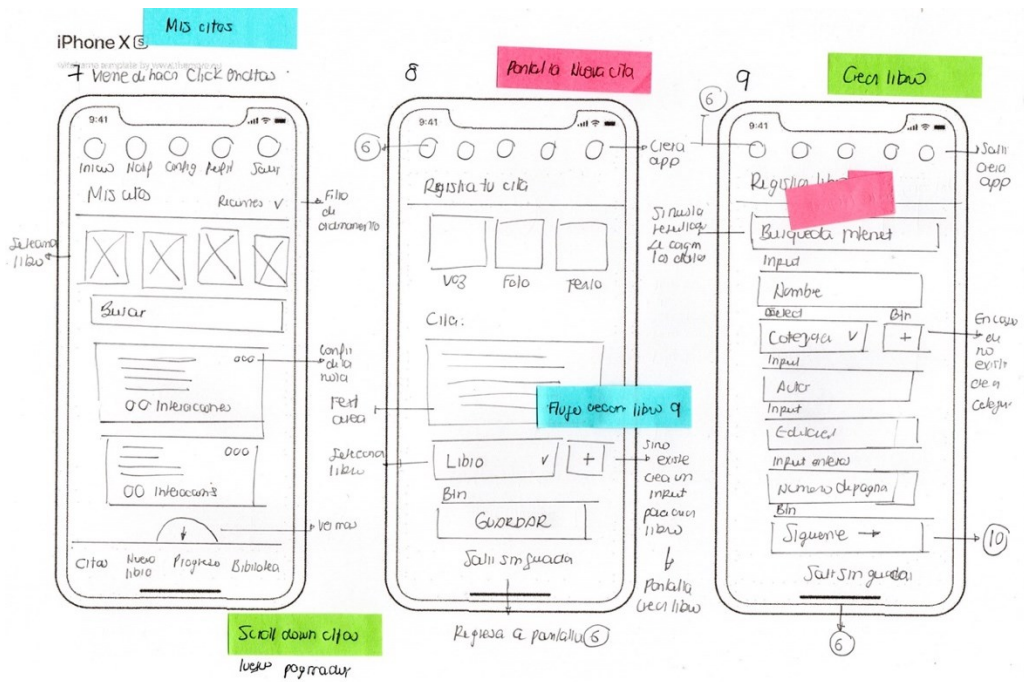 Mis citas
iPhone X S
7 Viene de hacer Click en citas
9:41
Inicio Notif Config Perfil Salir
Mis citas
Recientes
Filtro de ordenamiento
Selecciona libro
Buscar
Config de la nota
Interacciones
Interaccions
Ver mas
Citas Nuevo libro Progreso Biblioteca
Scroll down citas
luego paginador
8
Pantalla Nueva cita
9:41
6
Cierra app
Registra tu cita
Voz Foto Texto
Cita:
Text area
Flujo crear libro 9
Selecciona libro
Libro
+
Si no existe crea un input para crear libro
Pantalla Crear libro
Btn
GUARDAR
Salir sin guardar
Regresa a pantalla 6
9
Crear libro
6
9:41
Salir Cierra app
Registra libro
Si no da resultado se cargan los datos
Busqueda internet
Input
Nombre
Select
Btn
Categoria
+
En caso de no existir crear categor
Input
Autor
Input
Editorial
Input entero
Numero de pagina
Btn
Siguiente →
10
Salir sin guardar
6